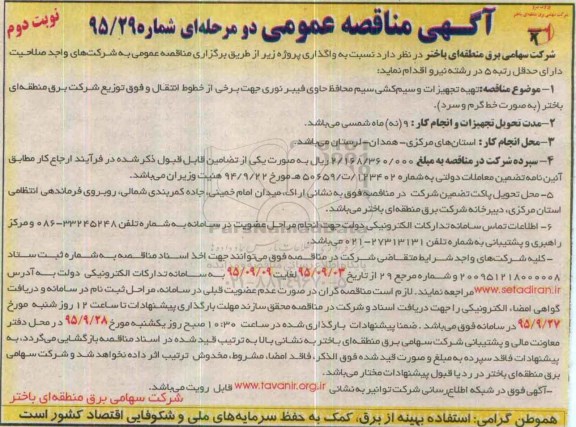 نوبت دوم
آگهی مناقصه عمومی دو مرحله‌ای شماره ۹۵/۲۹
شرکت سهامی برق منطقه‌ای باختر در نظر دارد نسبت به واگذاری پروژه زیر از طریق برگزاری مناقصه عمومی به شرکت‌های واجد صلاحیت
دارای حداقل رتبه ۵ در رشته نیرو اقدام نماید:
۱- موضوع مناقصه: تهیه تجهیزات و سیم‌کشی سیم محافظ حاوی فیبر نوری جهت برخی از خطوط انتقال و فوق توزیع شرکت برق منطقه‌ای
باختر (به صورت خط گرم و سرد).
۲- مدت تحویل تجهیزات و انجام کار: ۹ (نه) ماه شمسی می‌باشد.
۳- محل انجام کار: استان‌های مرکزی - همدان - لرستان می‌باشد.
۴- سپرده شرکت در مناقصه به مبلغ ۲/۱۶۸/۳۶۰/۰۰۰ ریال به صورت یکی از تضامین قابل قبول ذکر شده در فرآیند ارجاع کار مطابق
آئین‌نامه تضمین معاملات دولتی به شماره ۱۲۳۴۰۲/ت۵۰۶۵۹ه مورخ ۹۴/۹/۲۲ هئیت وزیران می‌باشد.
۵- محل تحویل پاکت تضمین شرکت در مناقصه فوق به نشانی اراک، میدان امام خمینی، جاده کمربندی شمالی، روبروی فرماندهی انتظامی
استان مرکزی، دبیرخانه شرکت برق منطقه‌ای باختر می‌باشد.
۶- اطلاعات تماس سامانه تدارکات الکترونیکی دولت جهت انجام مراحل عضویت در سامانه به شماره تلفن ۳۳۲۴۵۲۴۸-۰۸۶ و مرکز
راهبری و پشتیبانی به شماره تلفن ۲۷۳۱۳۱۳۱-۰۲۱ می‌باشد.
- کلیه شرکت‌های واجد شرایط متقاضی شرکت در مناقصه فوق می‌توانند جهت اخذ اسناد مناقصه به شماره ثبت ستاد
۲۰۰۹۵۱۲۱۸۰۰۰۰۰۸ و شماره مرجع ۲۹ از تاریخ ۹۵/۰۹/۰۳ لغایت ۹۵/۰۹/۰۹ به سامانه تدارکات الکترونیکی دولت به آدرس
www.setadiran.ir مراجعه نمایند. لازم است مناقصه گران در صورت عدم عضویت قبلی در سامانه، مراحل ثبت نام در سامانه و دریافت
گواهی امضاء الکترونیکی را جهت دریافت اسناد و شرکت در مناقصه محقق سازند مهلت بارگذاری پیشنهادات تا ساعت ۱۲ روز شنبه مورخ
۹۵/۹/۲۷ در سامانه فوق می‌باشد. ضمنا پیشنهادات بارگذاری شده در ساعت ۱۰:۳۰ صبح روز یکشنبه مورخ ۹۵/۹/۲۸ در محل دفتر
معاونت مالی و پشتیبانی شرکت سهامی برق منطقه‌ای باختر به نشانی بالا به ترتیب قید شده در اسناد مناقصه بازگشایی می‌گردد، به
پیشنهادات فاقد سپرده به مبلغ و صورت قید شده فوق الذکر، فاقد امضا، مشروط، مخدوش ترتیب اثر داده نخواهد شد و شرکت سهامی
برق منطقه‌ای باختر در رد یا قبول پیشنهادات مختار می‌باشد.
- آگهی فوق در شبکه اطلاع رسانی شرکت توانیر به نشانی www.tavanir.org.ir قابل رویت می‌باشد.
شرکت سهامی برق منطقه‌ای باختر
هموطن گرامی: استفاده بهینه از برق، کمک به حفظ سرمایه‌های ملی و شکوفایی اقتصاد کشور است